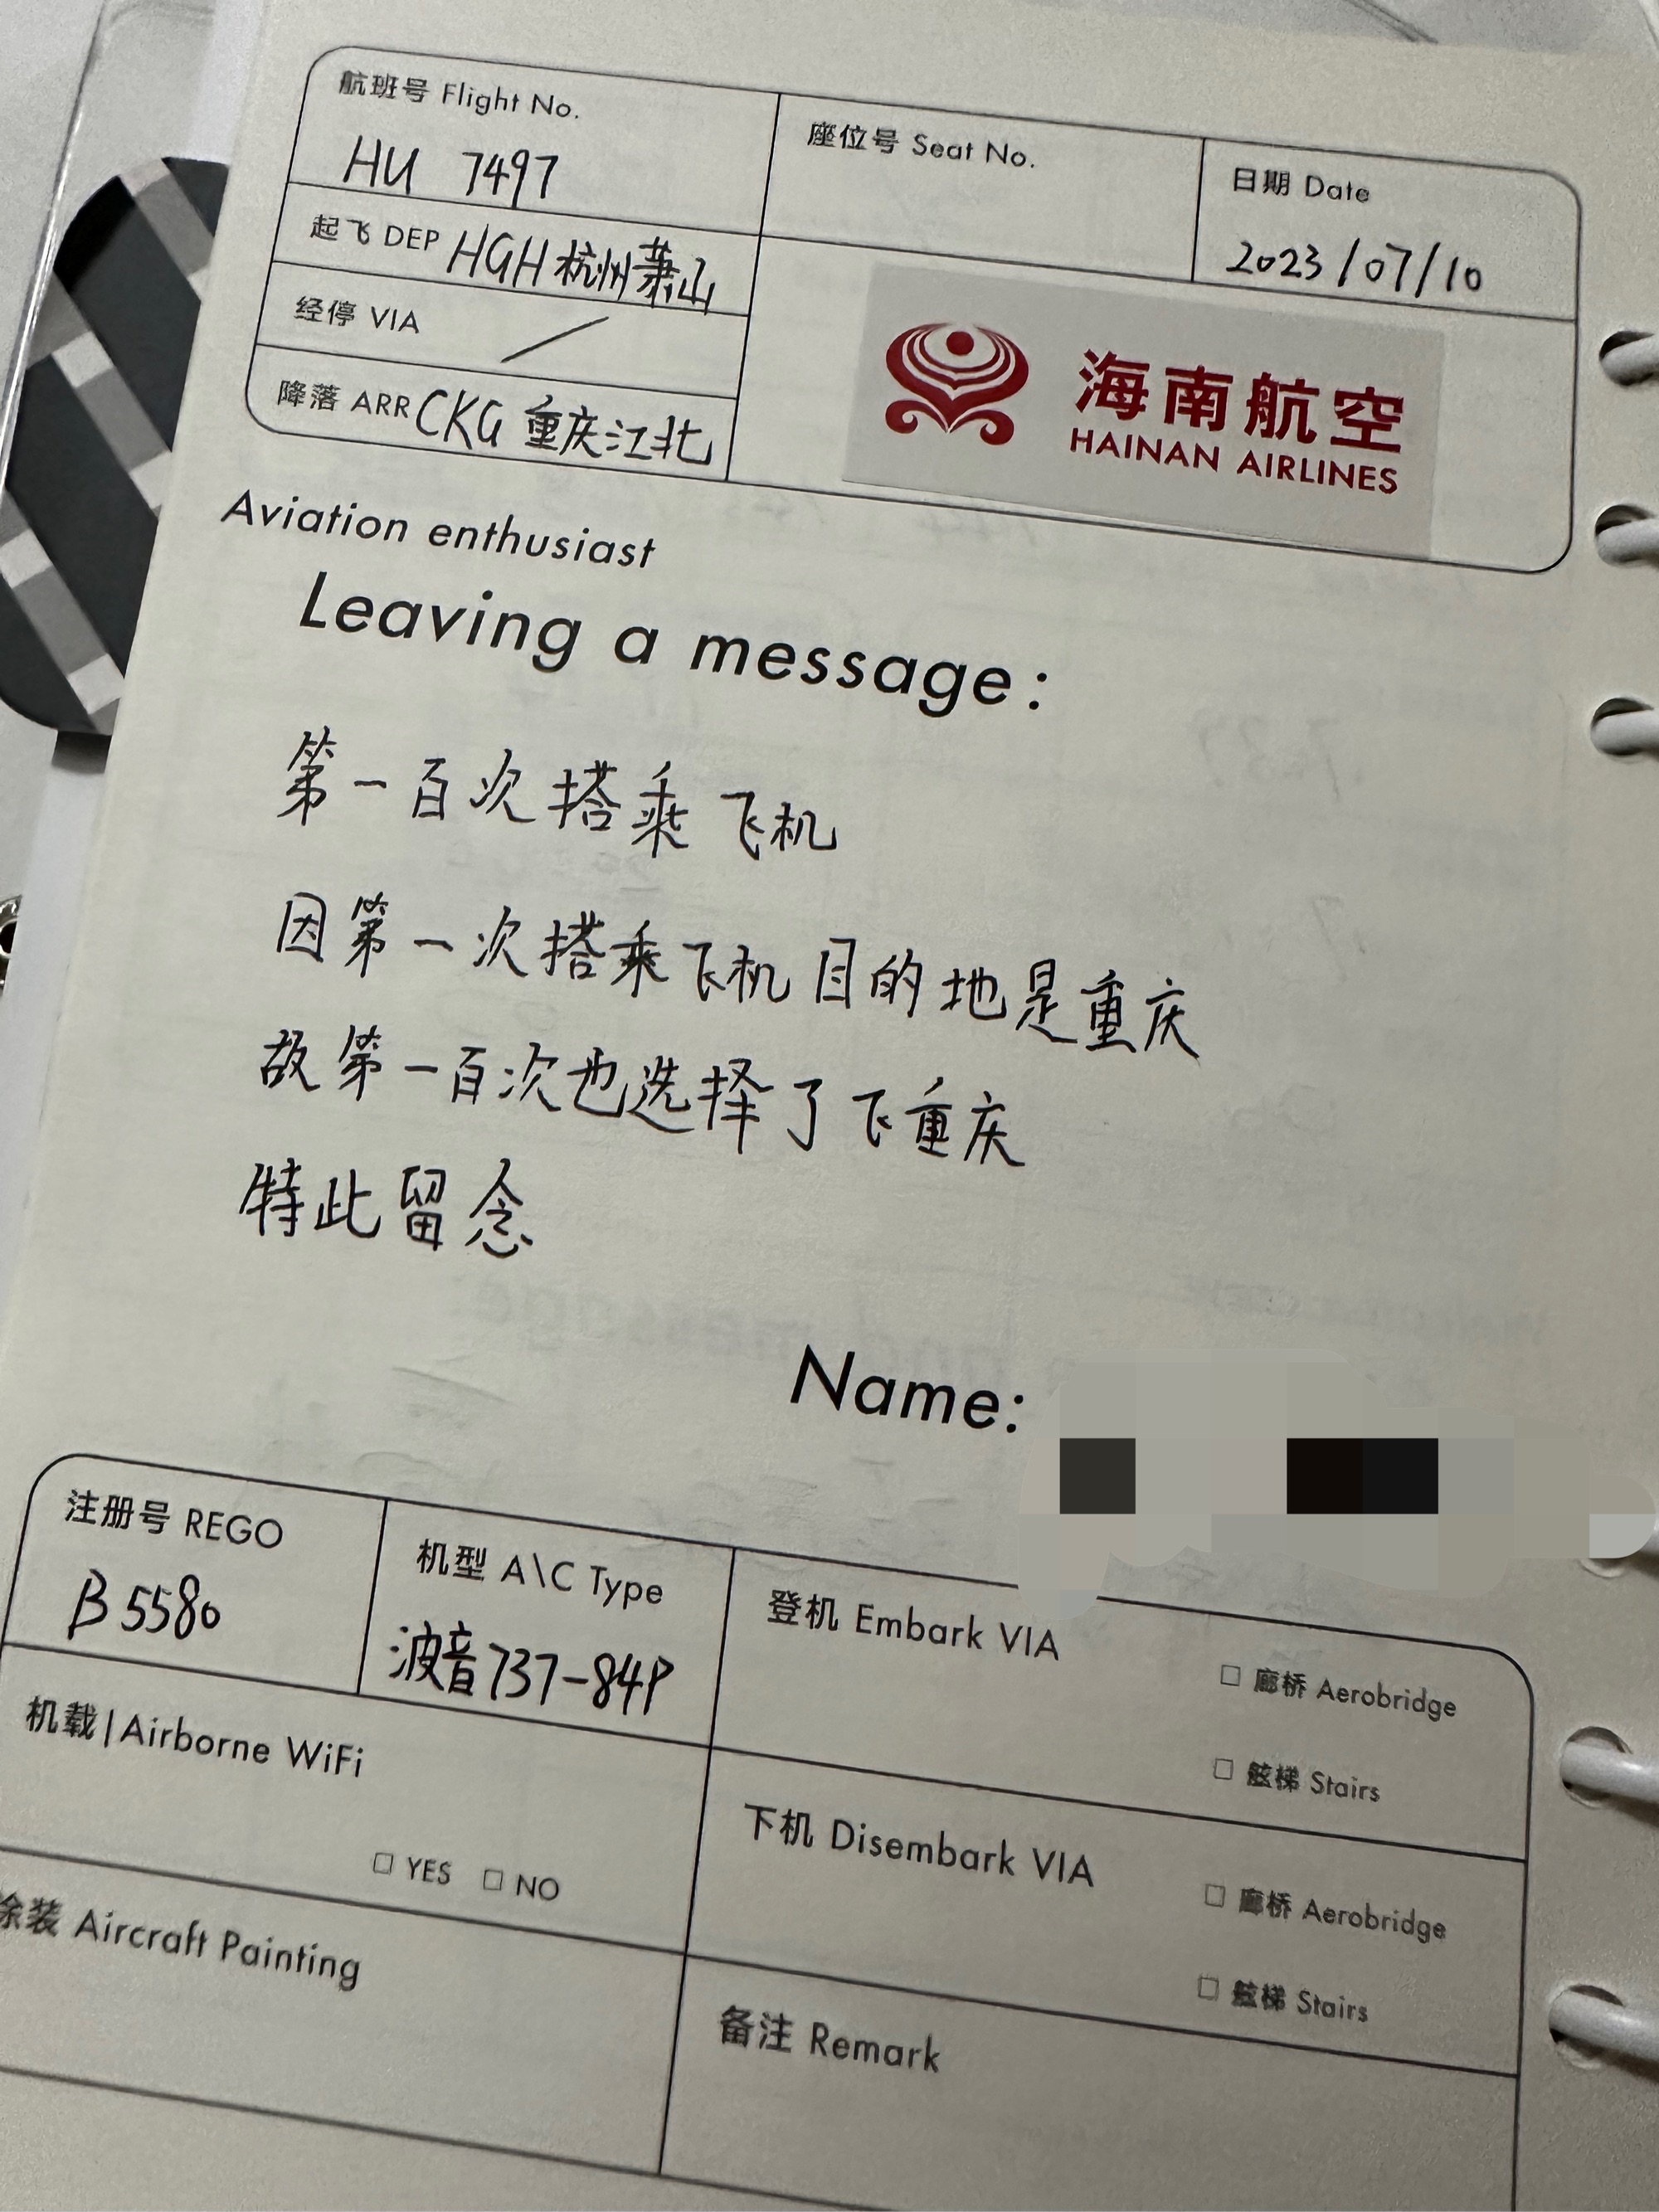 航班号 Flight No.
HU 7497
座位号 Seat No.
日期 Date
2023/07/10
起飞 DEP HGH 杭州萧山
经停 VIA /
降落 ARR CKG 重庆江北
海南航空
HAINAN AIRLINES
Aviation enthusiast
Leaving a message:
第一百次搭乘飞机
因第一次搭乘飞机目的地是重庆
故第一百次也选择了飞重庆
特此留念
Name:
注册号 REGO
B 5580
机型 A\C Type
波音737-84P
登机 Embark VIA
□ 廊桥 Aerobridge
□ 舷梯 Stairs
机载|Airborne WiFi
□ YES □ NO
下机 Disembark VIA
□ 廊桥 Aerobridge
□ 舷梯 Stairs
涂装 Aircraft Painting
备注 Remark